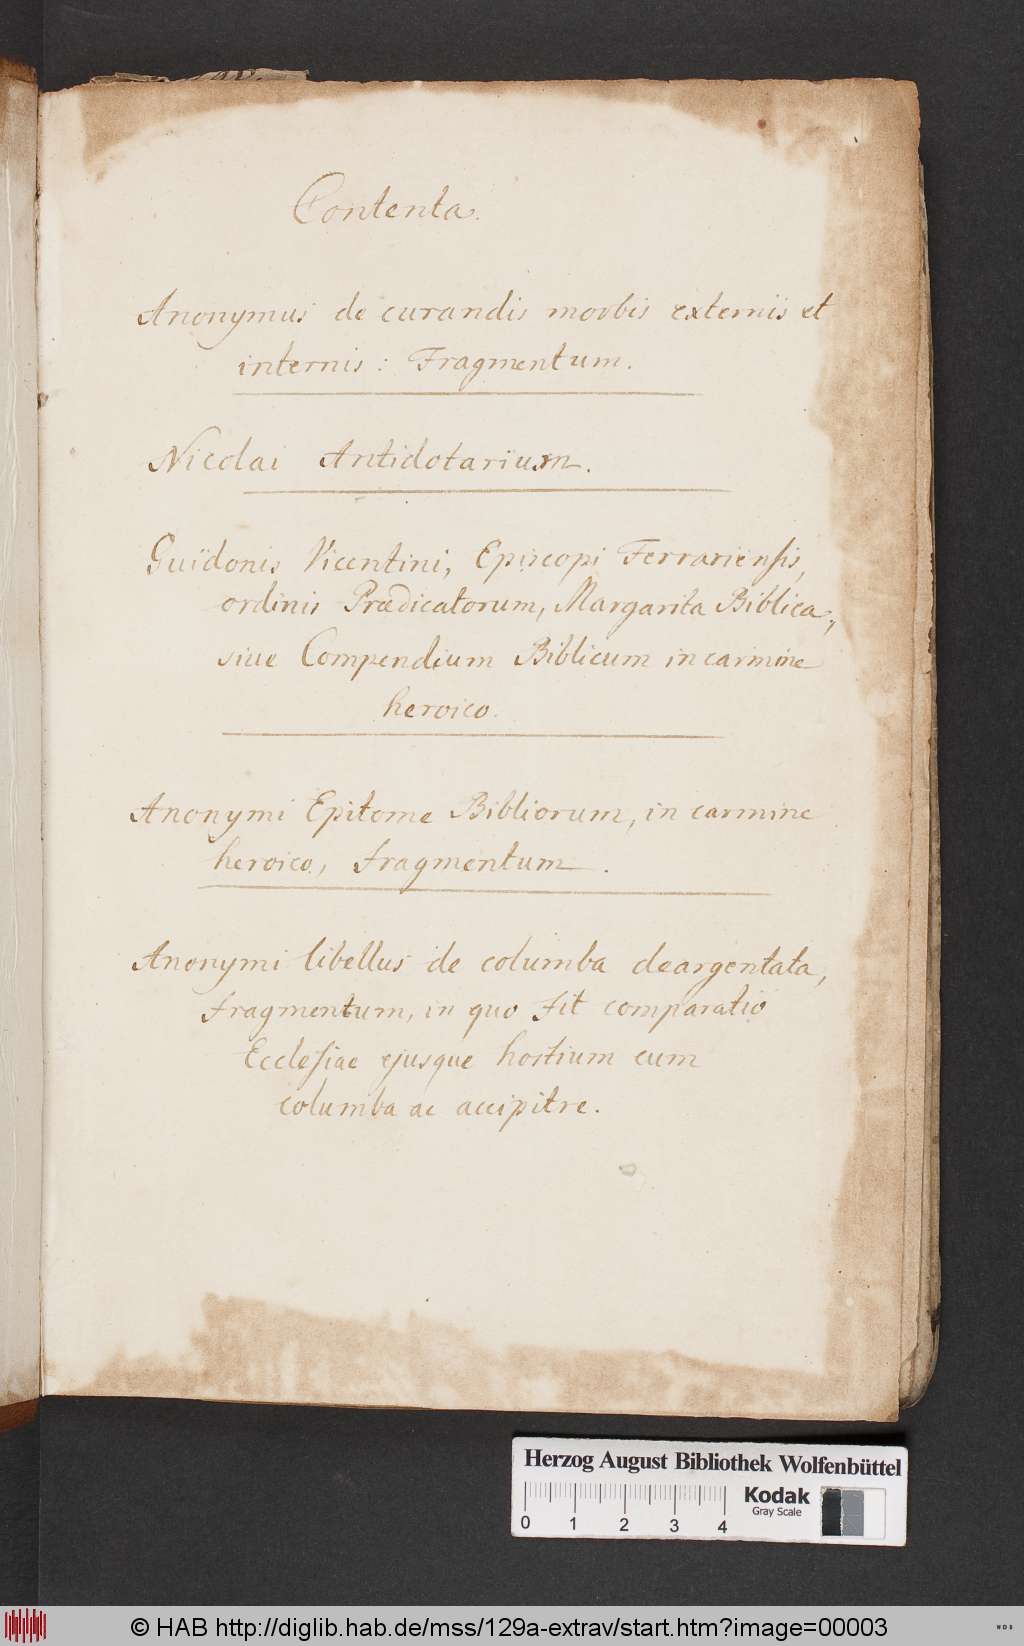 Contenta.
Anonymus de curandis morbis externis et
internis: Fragmentum.
Nicolai Antidotarium.
Guidonis Vicentini, Episcopi Ferrariensis,
ordinis Prædicatorum, Margarita Biblica,
sive Compendium Biblicum in carmine
heroico.
Anonymi Epitome Bibliorum, in carmine
heroico, fragmentum.
Anonymi libellus de columba deargentata,
fragmentum, in quo fit comparatio
Ecclesiae ejusque hostium cum
columba ac accipitre.
Herzog August Bibliothek Wolfenbüttel
0 1 2 3 4
Kodak
Gray Scale
© HAB http://diglib.hab.de/mss/129a-extrav/start.htm?image=00003